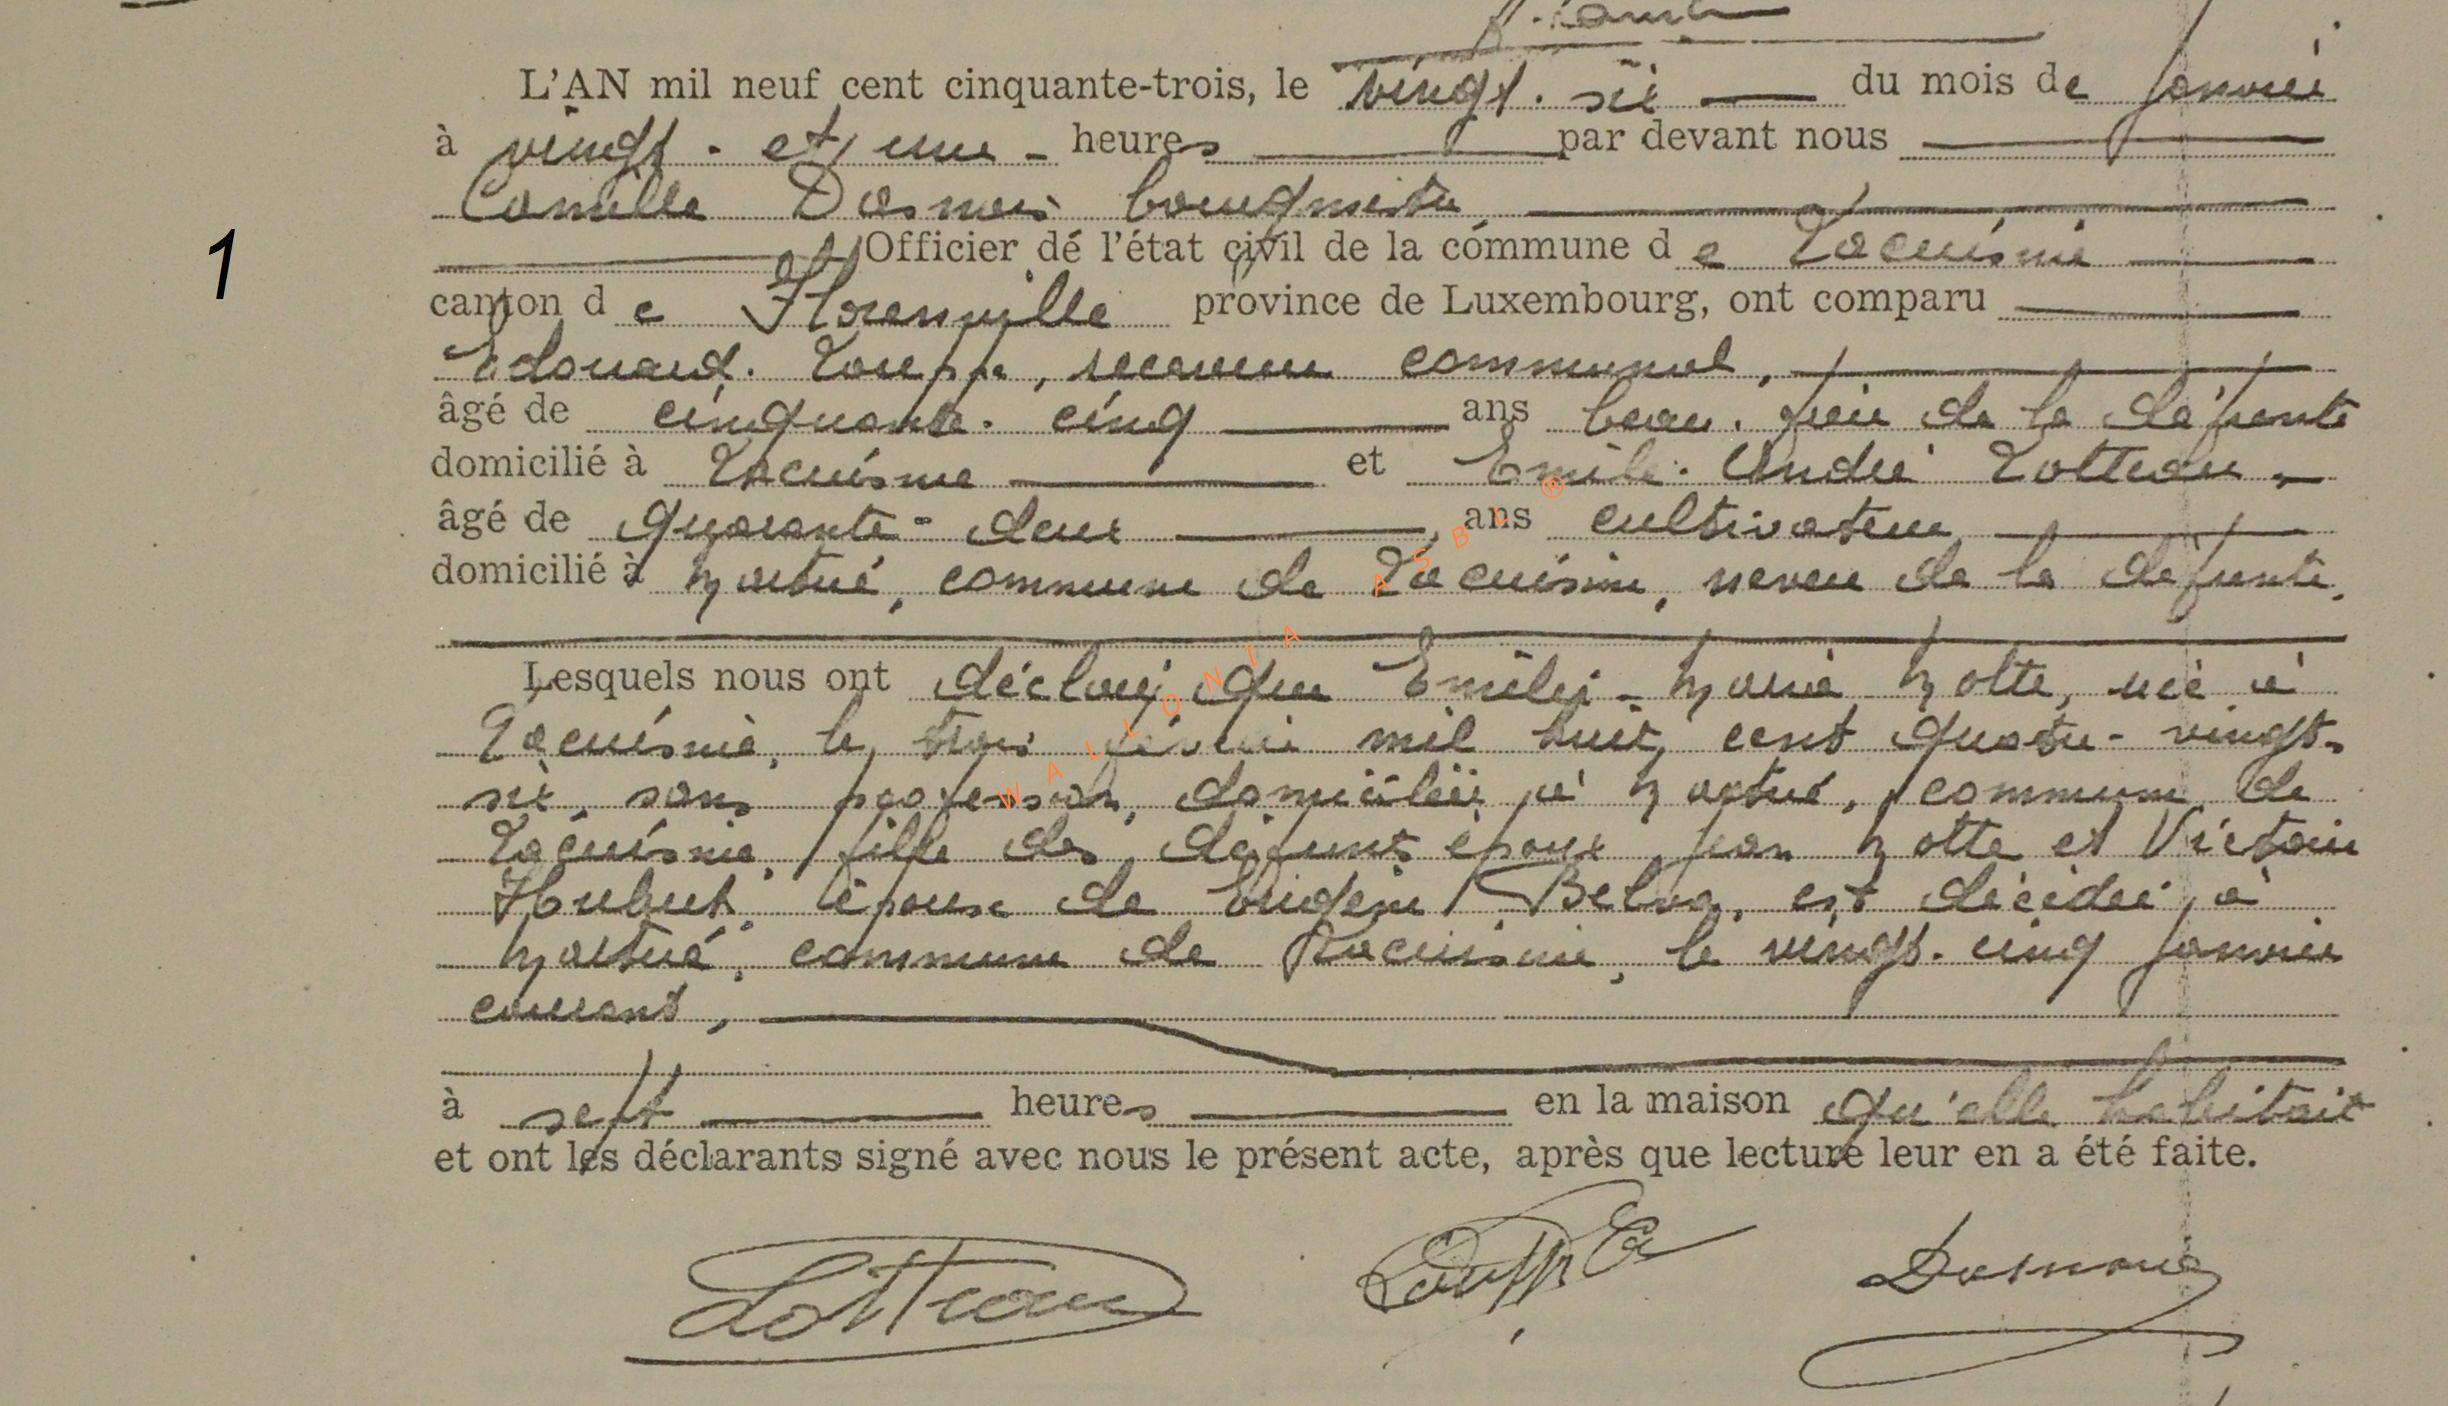 L'AN mil neuf cent cinquante-trois, le vingt-six du mois de Janvier
à vingt-et-une heures par devant nous
Camille Dasnois bourgmestre
1
Officier de l'état civil de la commune de Lacuisine
canton de Florenville province de Luxembourg, ont comparu
Edouard Louppe, receveur communal,
âgé de cinquante-cinq ans beau-frère de la défunte
domicilié à Lacuisine et Emile-André Lotteau
âgé de quarante-deux ans cultivateur
domicilié à Martué, commune de Lacuisine, neveu de la défunte.
Lesquels nous ont déclaré que Emilie-Maria Motte, née à
Lacuisine, le trois février mil huit cent quatre-vingt-
six, sans profession, domiciliée à Martué, commune de
Lacuisine, fille des défunts époux Jean Motte et Victoire
Hubert, épouse de Eugène Belva, est décédée à
Martué, commune de Lacuisine, le vingt-cinq Janvier
courant,
à sept heures en la maison qu'elle habitait
et ont les déclarants signé avec nous le présent acte, après que lecture leur en a été faite.
Lotteau Louppe Ed Dasnois
WALLONIA ASBL ®